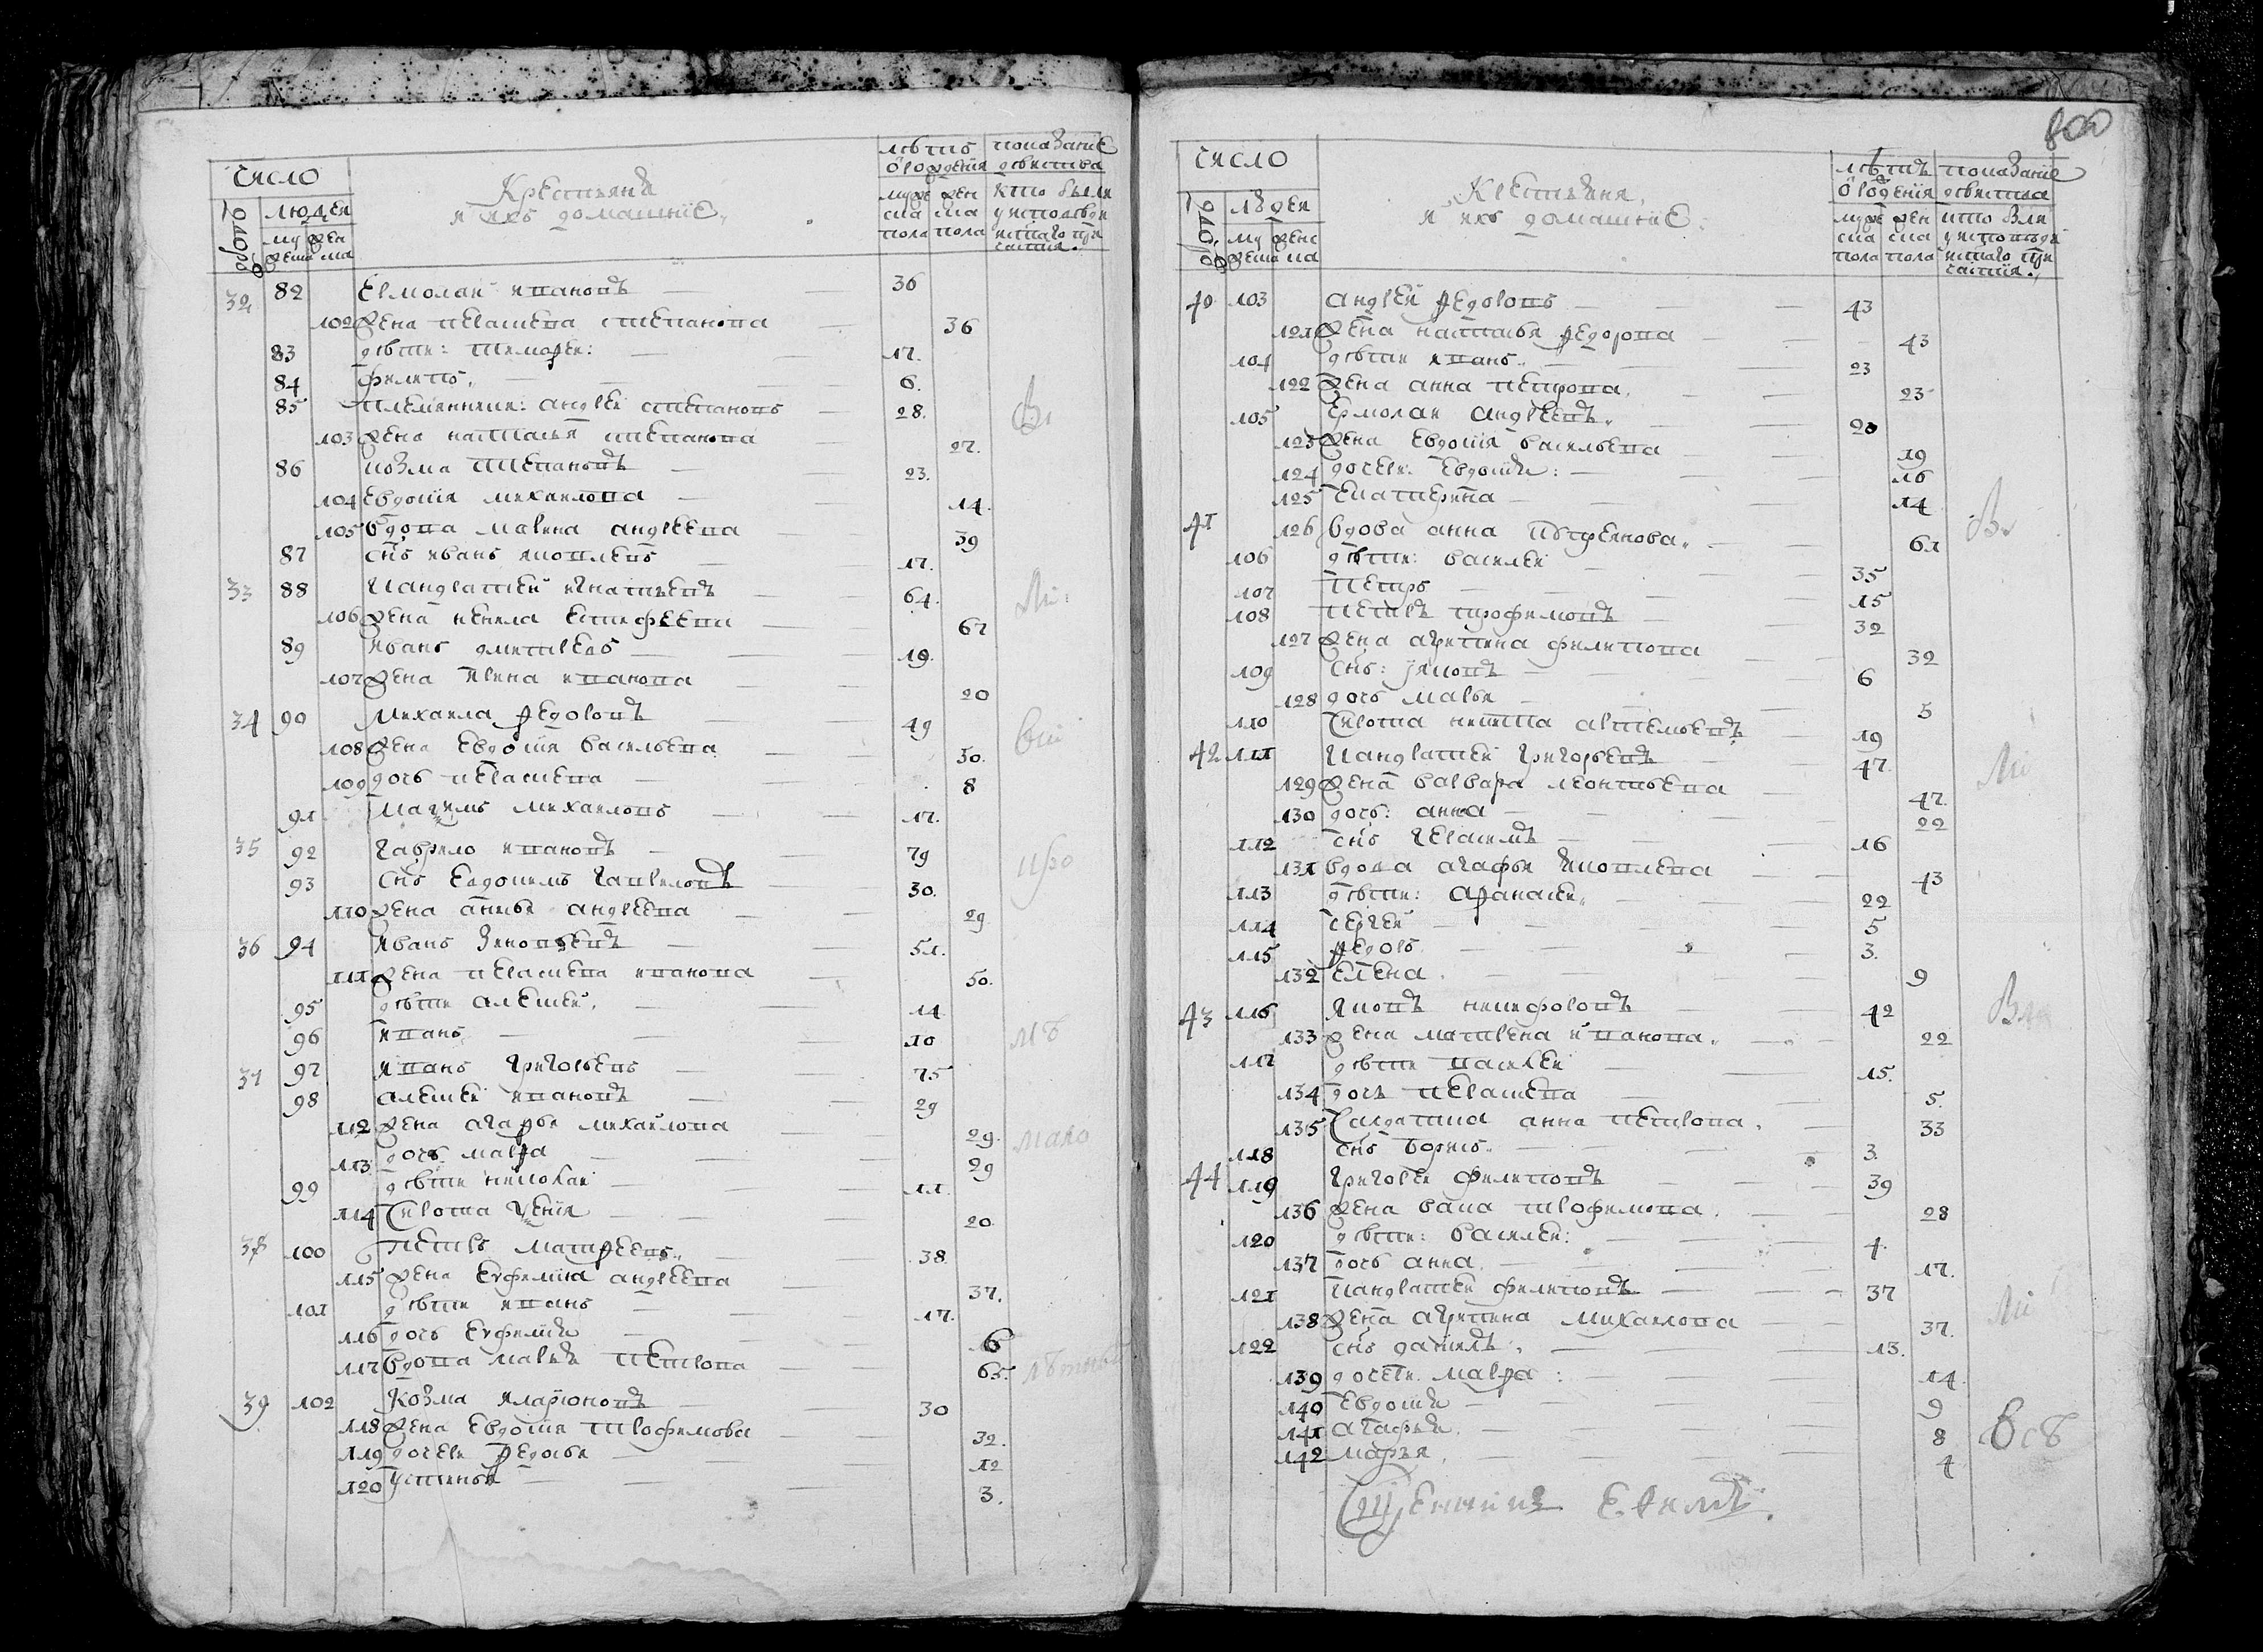 число
дворовъ
людей
муже
ска
жен
ска
Крестьяня
и ихъ домашнїе
лѣтъ
ѿ рожденїя
муже
ска
пола
жен
ска
пола
показанїе
дѣйства
кто былъ
у исповѣди
и с͠таго при
частия
32 82 Ермолаи ивановъ 36
102 жена пелагиена степанова 36
83 дѣти: тимофеи: 17.
84 филипъ, 6.
85 племянники: андреи степановъ 28.
103 жена наталья степанова 27.
86 козма степановъ 23.
104 Евдокия михаилова 14.
105 вдова марина андреева 39
87 сн͠ъ иванъ яковлевъ 17.
33 88 кандратеи игнатьевъ 64.
106 жена ненила естифеева 67
89 иванъ дмитревъ 19.
107 жена ирина иванова 20
34 90 михаила федоровъ 49
108 жена Евдокия васильева 50.
109 дочь пелагиена 8
91 Максимъ михаиловъ 17.
35 92 гаврило ивановъ 79
93 сн͠ъ Евдокимъ гавриловъ 30.
110 жена анисья андреева 29
36 94 иванъ зиновьевъ 51.
111 жена пелагиена иванова 50.
95 дѣти алексеи, 14
96 иванъ 10
37 97 иванъ григорьевъ 75
98 алексеи ивановъ 29
112 жена агафья михаилова 29.
113 дочь марфа 29
99 дѣти николаи 11.
114 Сирота ксения 20.
38 100 петръ матфеевъ 38
115 жена Евфимия андреева 37.
101 дѣти иванъ 17.
116 дочь Евфимия 6
117 вдова марья петрова 65.
39 102 Козма иларионовъ 30
118 жена Евдокия трофимова 32.
119 дочери федосья 12
120 устинья 3.
800
число
дворовъ
людеи
муже
ска
женс
ка
Крестьяня,
и ихъ домашнїе:
лѣтъ
ѿ рожденїя
муже
ска
пола
жен
ска
пола
показанїе
дѣйства
кто были
у исповѣди
и с͠таго при
частия
40 103 андреи федоровъ 43
121 жена наталья федорова 43
104 дѣти иванъ 23
122 жена анна петрова 23
105 Ермолаи андреевъ 20
123 жена Евдокия васильева 19
124 дочери Евдокия: 16
125 Екатерина 14
41 126 вдова анна 61
106 дѣти: василеи 35
107 петръ 15
108 петръ трофимовъ 32
127 жена агрипина филипова 32
109 сн͠ъ: яковъ 6
128 дочь марья 5
110 Сирота никита артемьевъ 19
42 111 кандратеи григорьевъ 47
129 жена варвара леонтьева 47.
130 дочь: анна 22
112 сн͠ъ герасимъ 16
131 вдова агафья яковлева 43
113 дѣти: афанасеи 22
114 сергеи 5
115 федоръ 3.
132 елена 9
43 116 яковъ никифоровъ 42
133 жена матрена иванова 22
117 дѣти василеи 15.
134 дочь пелагиена 5.
135 Салдатка анна петрова 33
118 сн͠ъ борисъ 3.
44 119 григореи филиповъ 39
136 жена васа трофимова 28
120 дѣти: василеи: 4.
137 дочь анна, 17.
121 кандратеи филиповъ 37
138 жена агрипина михаилова 37.
122 сн͠ъ данилъ, 13.
139 дочери марфа: 14
140 Евдокия 9
141 агафья 8
142 марья 4